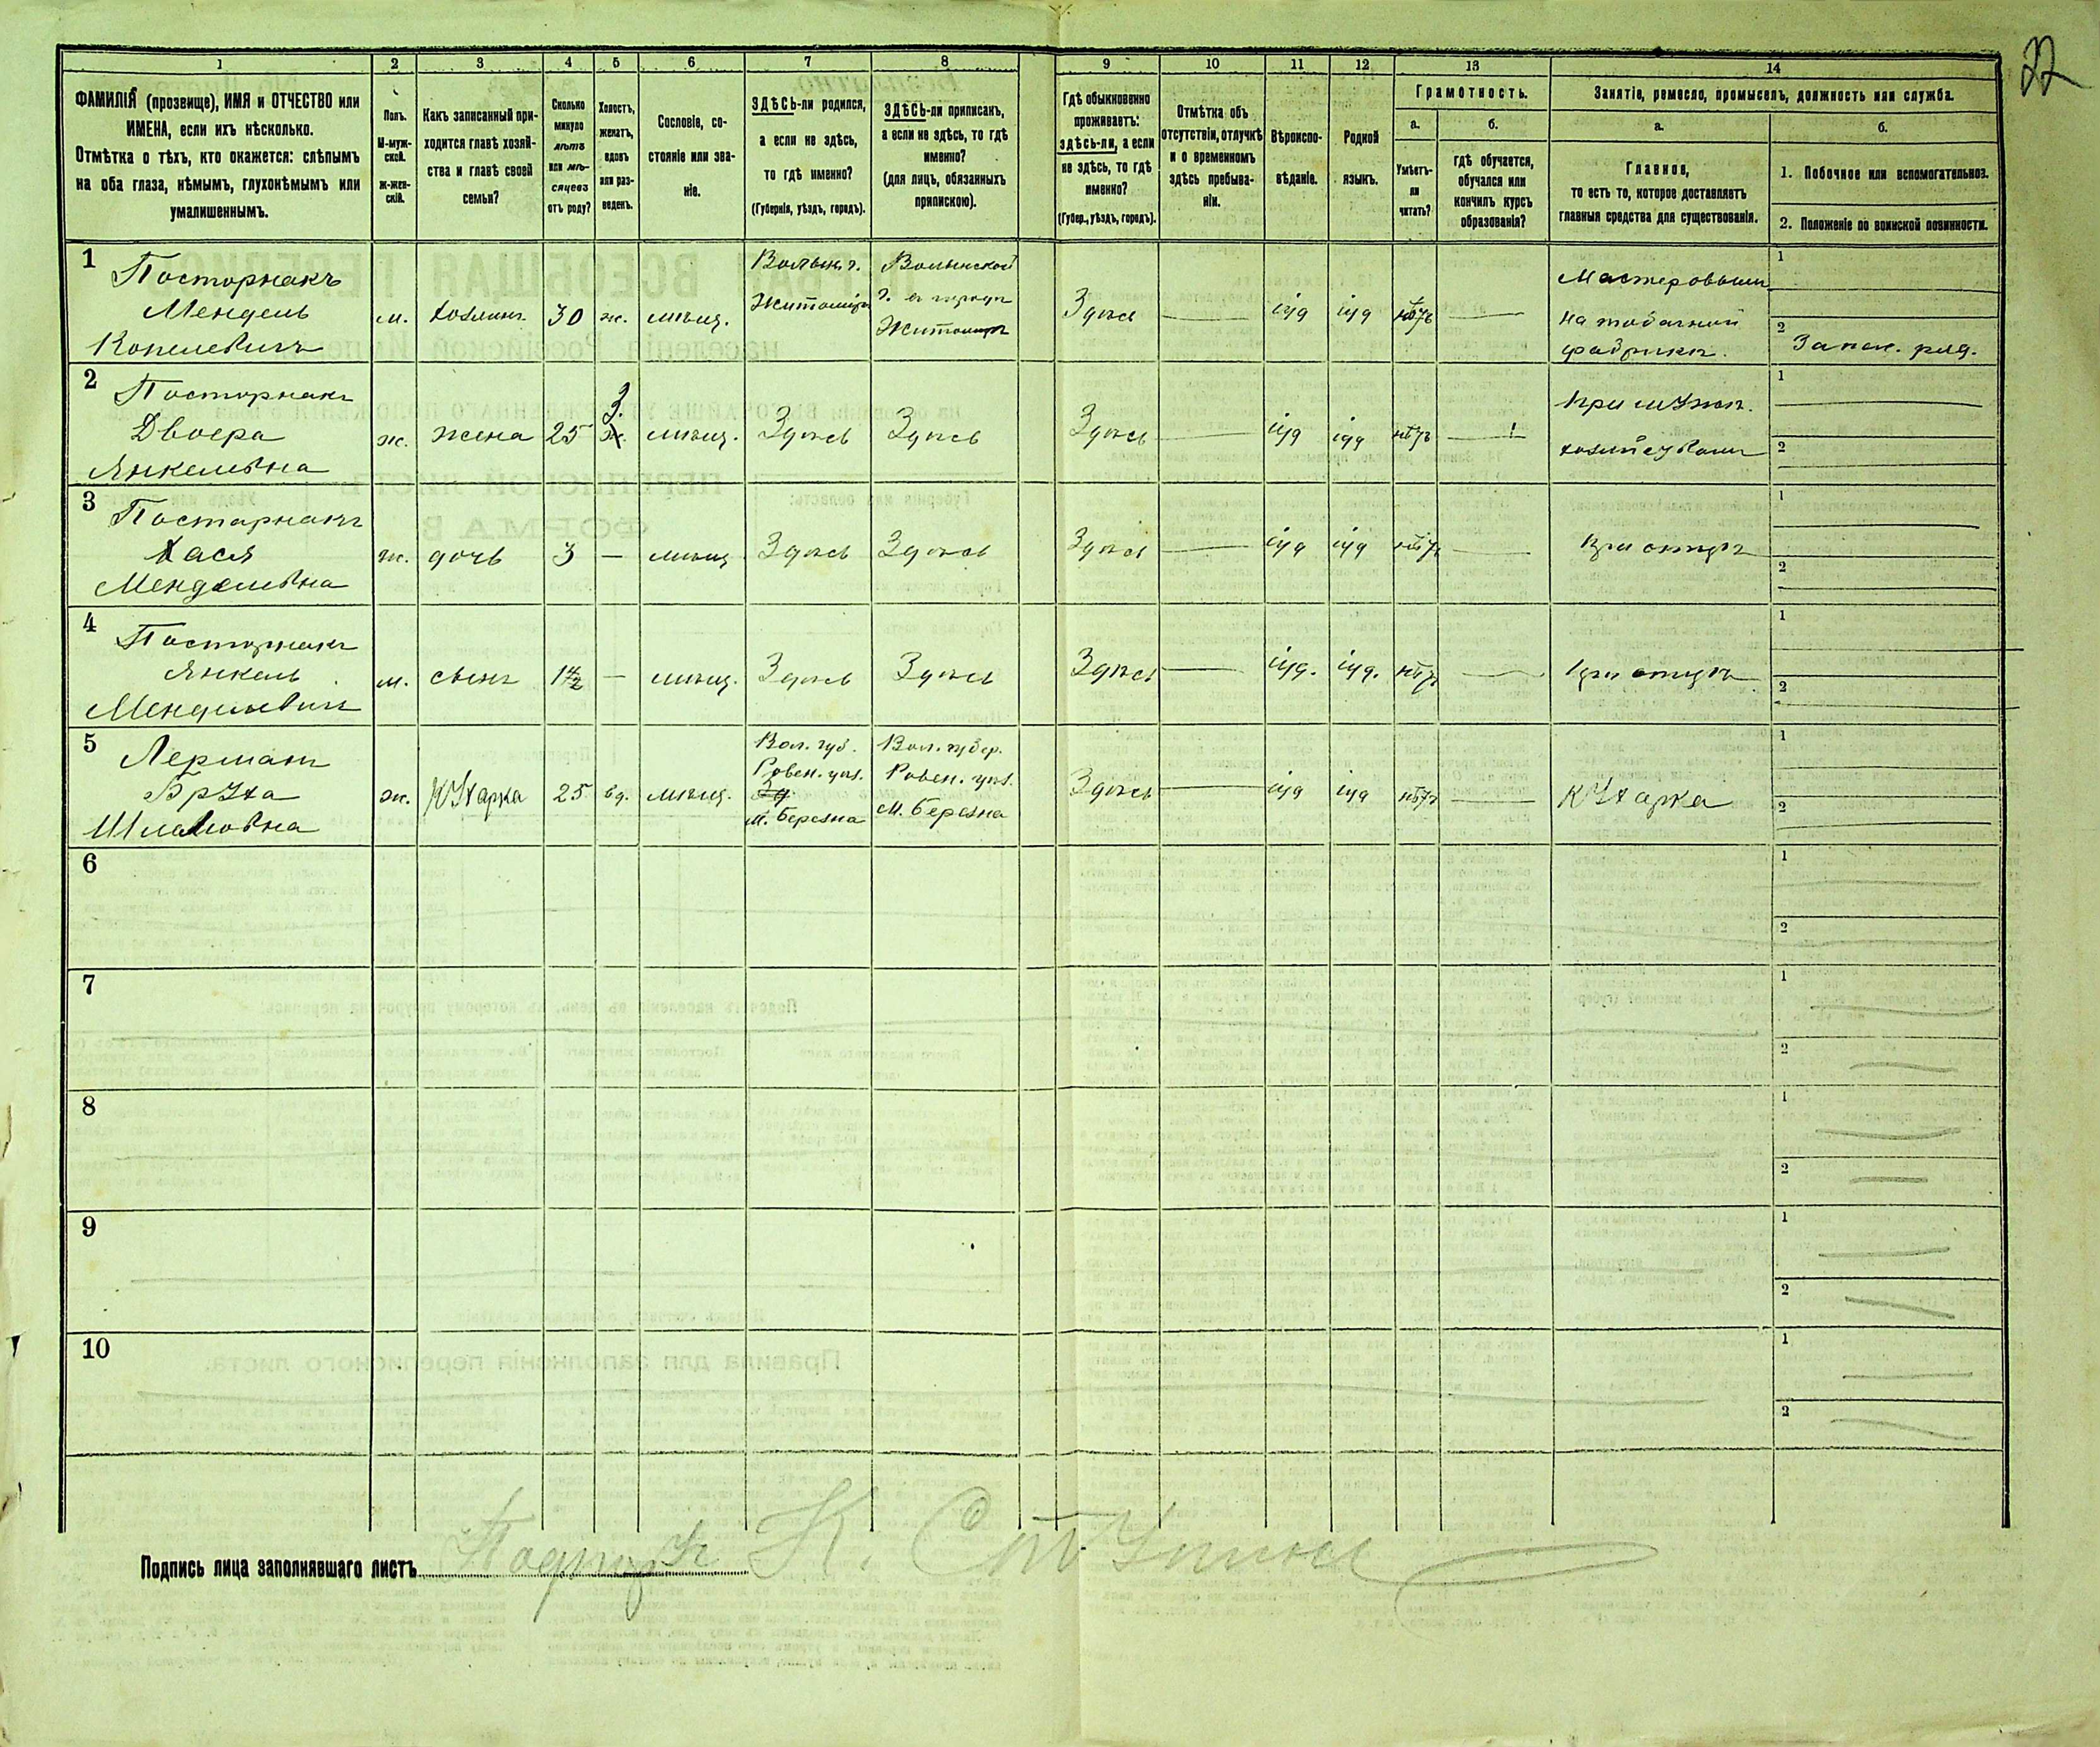 22
1 2 3 4 5 6 7 8 9 10 11 12 13 14
ФАМИЛІЯ (прозвище), ИМЯ и ОТЧЕСТВО или
ИМЕНА, если ихъ нѣсколько.
Отмѣтка о тѣхъ, кто окажется: слѣпымъ
на оба глаза, нѣмымъ, глухонѣмымъ или
умалишеннымъ.
Полъ.
М-муж-
ской.
ж-жен-
скій.
Какъ записанный при-
ходится главѣ хозяй-
ства и главѣ своей
семьи?
Сколько
минуло
лѣтъ
или мѣ-
сяцевъ
отъ роду?
Холостъ,
женатъ,
вдовъ
или раз-
веденъ.
Сословіе, со-
стояніе или зва-
ніе.
ЗДѢСЬ-ли родился,
а если не здѣсь,
то гдѣ именно?
(Губернія, уѣздъ, городъ).
ЗДѢСЬ-ли приписанъ,
а если не здѣсь, то гдѣ
именно?
(для лицъ, обязанныхъ
припискою).
Гдѣ обыкновенно
проживаетъ:
здѣсь-ли, а если
не здѣсь, то гдѣ
именно?
(Губер., уѣздъ, городъ).
Отмѣтка объ
отсутствіи, отлучкѣ
и о временномъ
здѣсь пребыва-
ніи.
Вѣроиспо-
вѣданіе.
Родной
языкъ.
Грамотность.
а.
Умѣетъ-
ли
читать?
б.
гдѣ обучается,
обучался или
кончилъ курсъ
образованія?
Занятіе, ремесло, промыселъ, должность или служба.
а.
Главное,
то есть то, которое доставляетъ
главныя средства для существованія.
б.
1. Побочное или вспомогательное.
2. Положеніе по воинской повинности.
1
Посторнакъ
Мендель
Копелевичъ
м.
хозяинъ
30
ж.
мѣщ.
Волын. г.
Житоміръ
Волынской
г. в городѣ
Житомирѣ
Здѣсь
іуд
іуд
нѣтъ
Мастеровымъ
на табачной
фабрикѣ.
1
2
Запас. ряд.
2
Посторнакъ
Двоера
Янкелевна
ж.
жена
25
З.
ж.
мѣщ.
Здѣсь
Здѣсь
Здѣсь
іуд
іуд
нѣтъ
При мужѣ.
1
2
3
Постарнакъ
Хася
Менделевна
ж.
дочь
3
—
мѣщ
Здѣсь
Здѣсь
Здѣсь
іуд
іуд
нѣтъ
При отцѣ
1
2
4
Посторнакъ
Янкель
Менделевичъ
м.
сынъ
1½
—
мѣщ.
Здѣсь
Здѣсь
Здѣсь
іуд.
іуд.
нѣтъ
при отцѣ
1
2
5
Лерманъ
Бруха
Шламовна
ж.
Кухарка
25
вд.
мѣщ.
Вол. губ.
Ровен. уѣз.
м. Березна
Вол. губер.
Ровен. уѣз.
м. Березна
Здѣсь
іуд
іуд
нѣтъ
Кухарка
1
2
6
1
2
7
1
2
8
1
2
9
1
2
10
1
2
Подпись лица заполнявшаго листъ